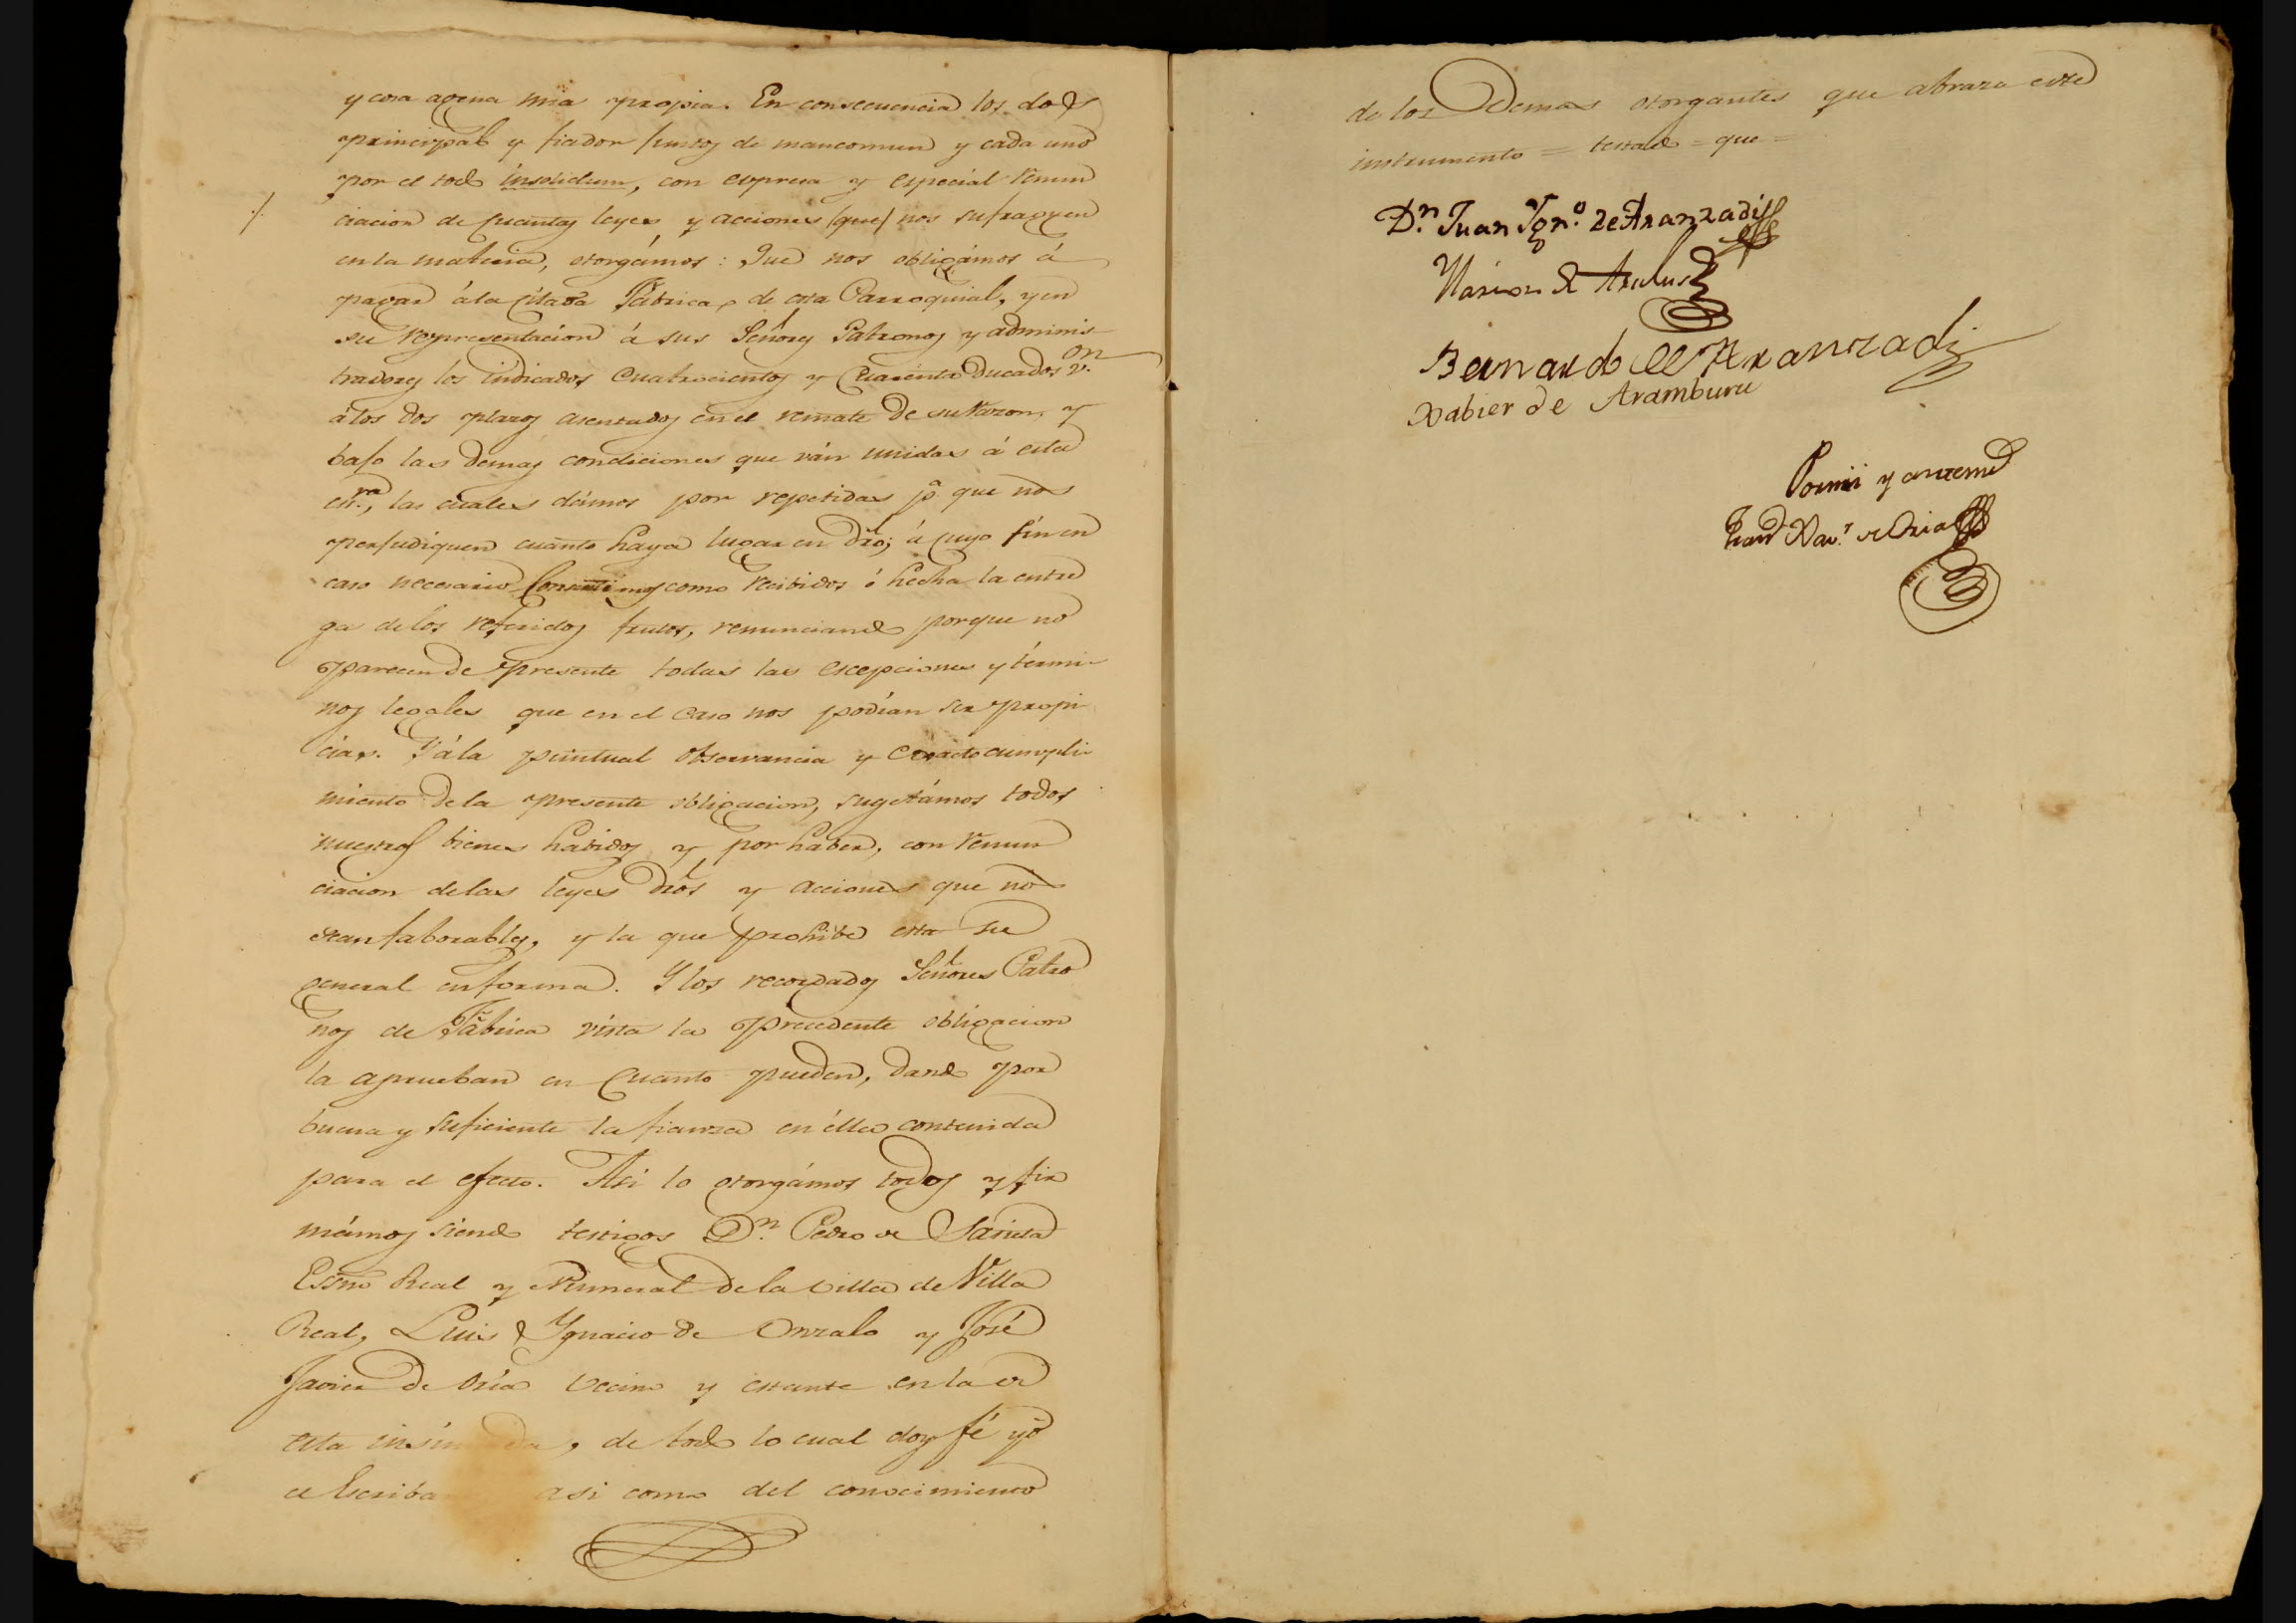 y cosa agena mia propia. En consecuencia los dos
principal y fiador juntos de mancomun y cada uno
por el todo insolidum, con expresa y especial renun
ciacion de cuantas leyes y acciones (que) nos sufraguen
en la materia, otorgámos: Que nos obligámos á
pagar á la citada Fábrica de esta Parroquial, y en
su representación á sus Señores Patronos y adminis
tradores los indicados Cuatrocientos y Cuarenta Ducados von
á los dos plazos asentados en el remate de su razon, y
bajo las demas condiciones que ván unidas á esta
esra, las cuales dámos por repetidas pa que nos
perjudiquen cuanto haya lugar en dro; á cuyo fin en
caso necesario Consentimos como recibidos ó hecha la entre
ga de los referidos frutos, renunciando porque no
parecen de presente todas las escepciones y térmi
nos legales que en el caso nos podian ser propi
cias. Y á la puntual observancia y exacto cumpli
miento de la presente obligacion, sugetámos todos
nuestros bienes habidos y por haber, con renun
ciacion de las leyes dros y acciones que nos
sean faborables, y la que prohibe esta su
general en forma. Y los recordados Señores Patro
nos de Fábrica vista la precedente obligacion
la aprueban en cuanto pueden, dando por
buena y suficiente la fianza en élla contenida
para el efecto. Asi lo otorgámos todos y fir
mámos siendo testigos Dn. Pedro de
Essno Real y Numeral de la Villa de Villa
Real, Luis Ygnacio de Onzalo y José
Javier de Oria vecino y estante en la
esta, de todo lo cual doy fé yo
el Escriba asi como del conocimiento
de los Demas otorgantes que abraza este
instrumento = testado = que =
Dn. Juan Ygno. de Aranzadi
Bernardo de Aranzadi
Xabier de Aramburu
Por mi y ante mi
Xavr. de Oria